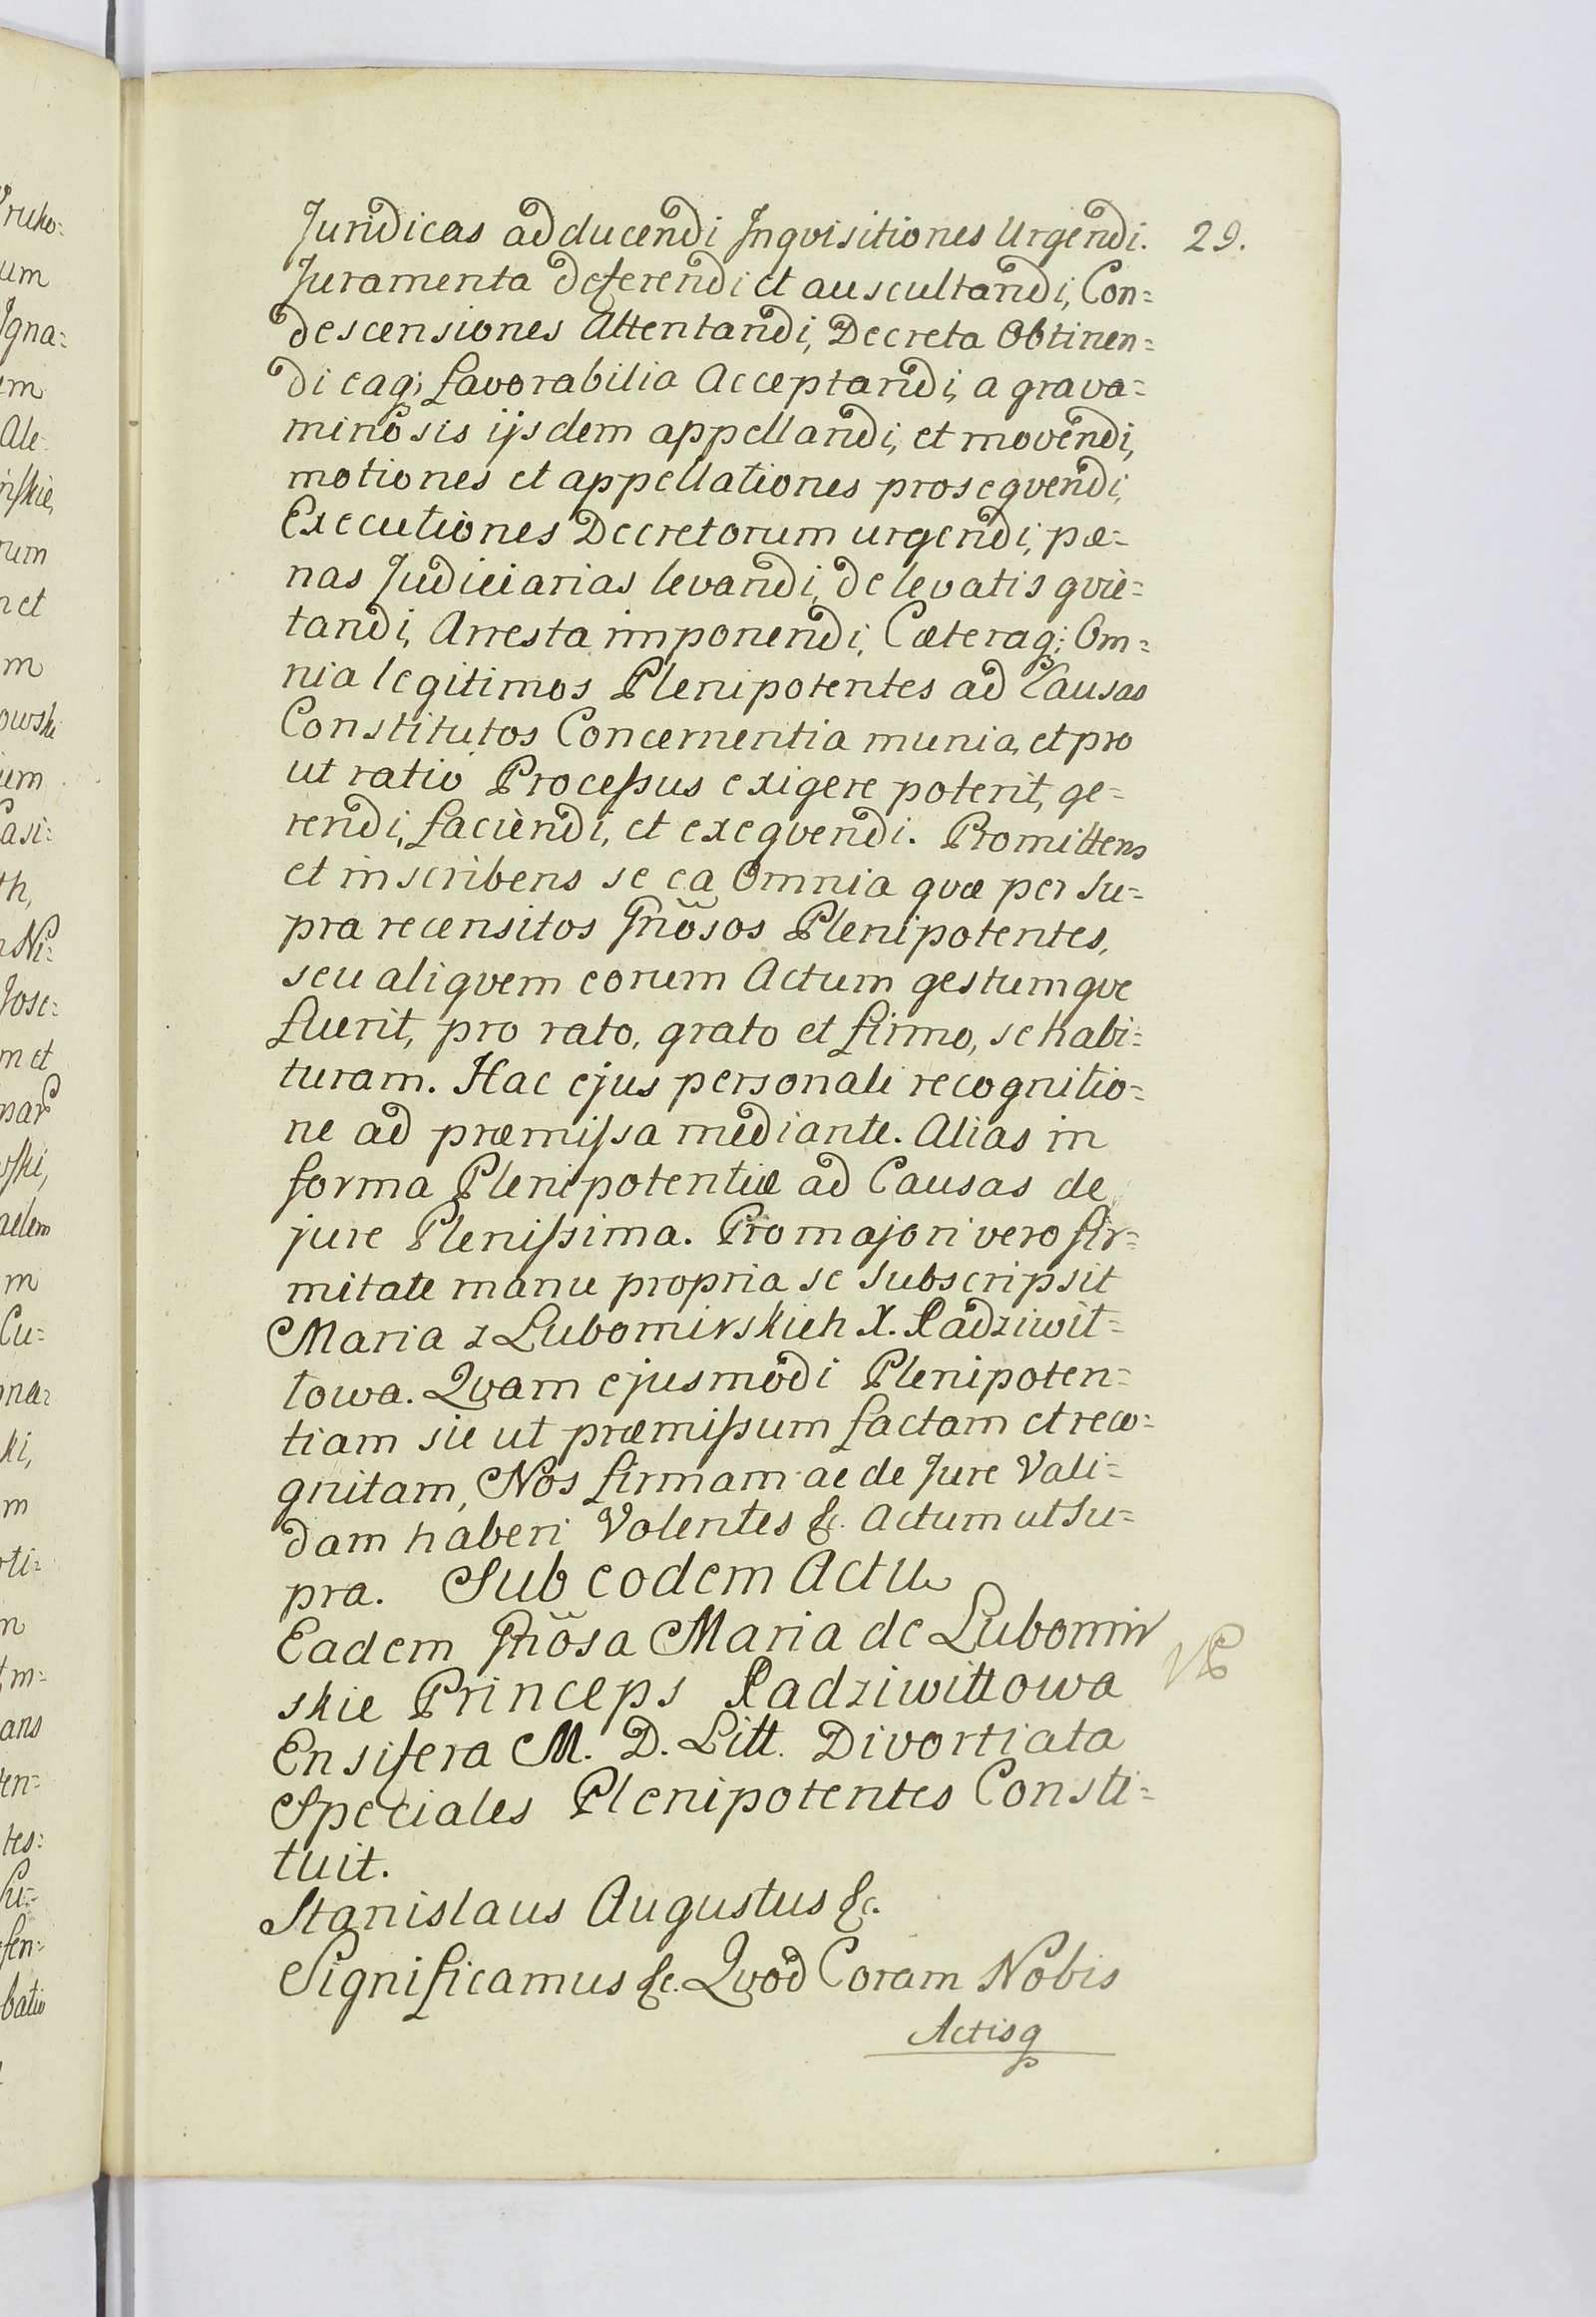 Juridicas adducendi Inqvisitiones Urgendi. 29.
Juramenta deferendi et auscultandi, Con=
descensiones Attentandi, Decreta Obtinen=
di eaq; favorabilia Acceptandi, a grava=
minosis ijsdem appellandi, et movendi,
motiones et appellationes proseqvendi,
Executiones Decretorum urgendi, pæ=
nas Judiciarias levandi, de levatis qvie=
tandi, Arresta imponendi, Cæteraq; Om=
nia legitimos Plenipotentes ad Causas
Constitutos Concernentia munia, et pro
ut ratio Processus exigere poterit, ge=
rendi, faciendi, et exeqvendi. Promittens
et inscribens se ea Omnia qvæ per su=
pra recensitos Gñosos Plenipotentes,
seu aliqvem eorum Actum gestumqve
fuerit, pro rato, grato et firmo, se habi=
turam. Hac ejus personali recognitio=
ne ad præmissa mediante. Alias in
forma Plenipotentiæ ad Causas de
jure Plenissima. Pro majori vero fir=
mitate manu propria se subscripsit
Maria z Lubomirskich X. Radziwił=
łowa. Qvam ejusmodi Plenipoten=
tiam sic ut præmissum factam et reco=
gnitam, Nos firmam ac de Jure Vali=
dam haberi Volentes &c. Actum ut su=
pra. Sub eodem Actu
Eadem Gñosa Maria de Lubomir
skie Princeps Radziwiłłowa
Ensifera M. D. Litt. Divortiata
Speciales Plenipotentes Consti=
tuit.
Stanislaus Augustus &c.
Significamus &c. Qvod Coram Nobis
Actisq